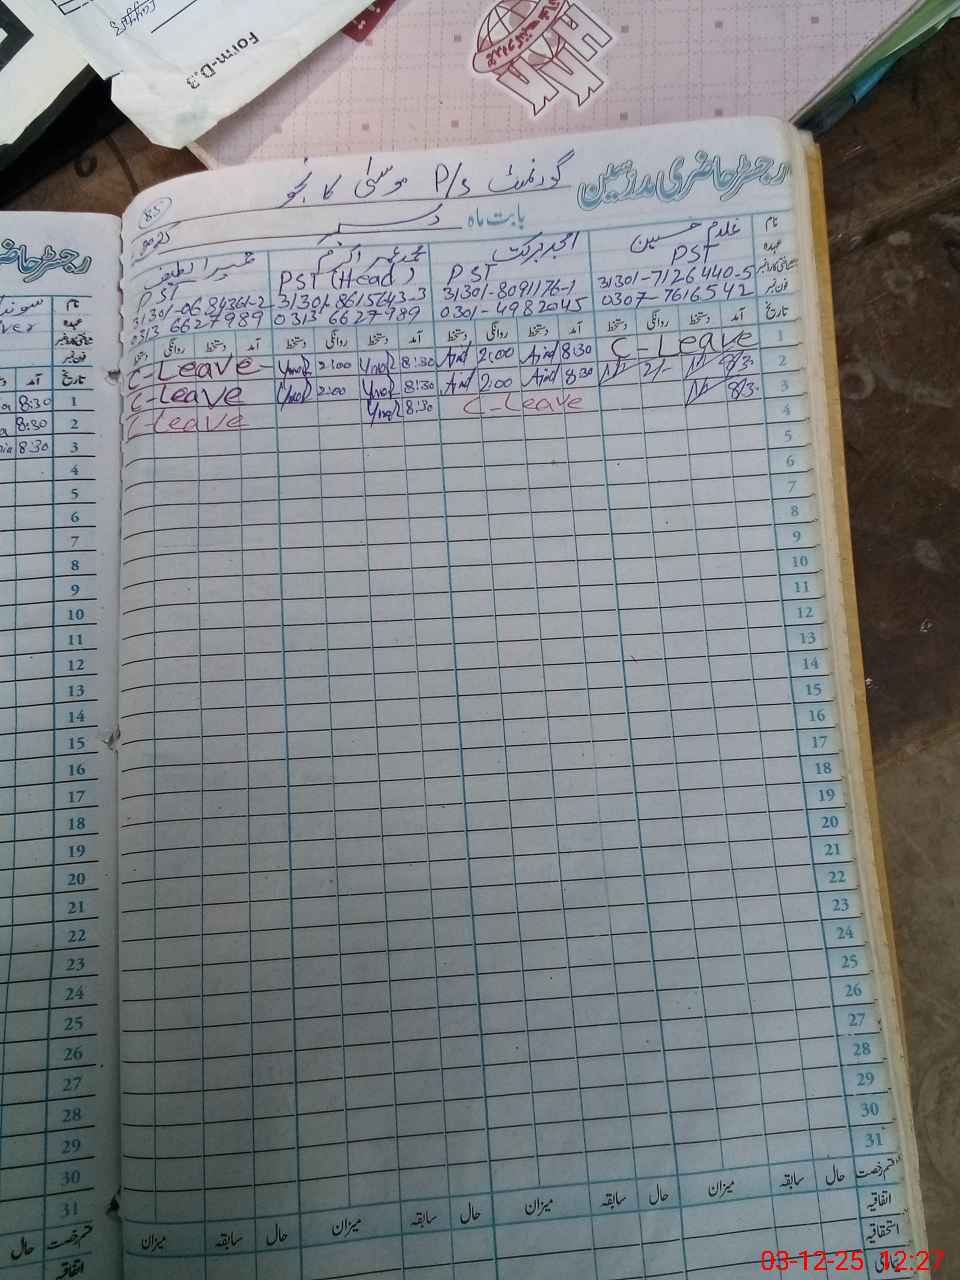 Form-D.3
رجسٹر حاضری مدرسین
گورنمنٹ P/S موسیٰ کا
85
بابت ماہ دسمبر
نام غلام حسین امجد برکت محمد عمر اکرم
عہدہ PST PST PST (Head) PST
31301-7126440-5 31301-8091176-1 31301-8615643-3 31301-0684361-2
فون نمبر 0307-7616542 0301-4982045 0313 6627989 0313 6627989
تاریخ آمد دستخط روانگی دستخط آمد دستخط روانگی دستخط آمد دستخط روانگی دستخط آمد دستخط روانگی دستخط
1 C-Leave 8:30 2:00 8:30 2:00 C-Leave
2 8/3- 2/- 8:30 2:00 8:30 2:00 C-Leave
3 8/3- C-Leave 8:30 C-Leave
4
5
6
7
8
9
10
11
12
13
14
15
16
17
18
19
20
21
22
23
24
25
26
27
28
29
30
31
قسم رخصت حال سابقہ میزان حال سابقہ میزان حال سابقہ میزان حال سابقہ میزان
اتفاقیہ
استحقاقیہ
رجسٹر حاضری
نام
عہدہ
فون نمبر
تاریخ آمد
1 8:30
2 8:30
3 8:30
4
5
6
7
8
9
10
11
12
13
14
15
16
17
18
19
20
21
22
23
24
25
26
27
28
29
30
31
قسم رخصت حال
اتفاقیہ
03-12-25 12:27